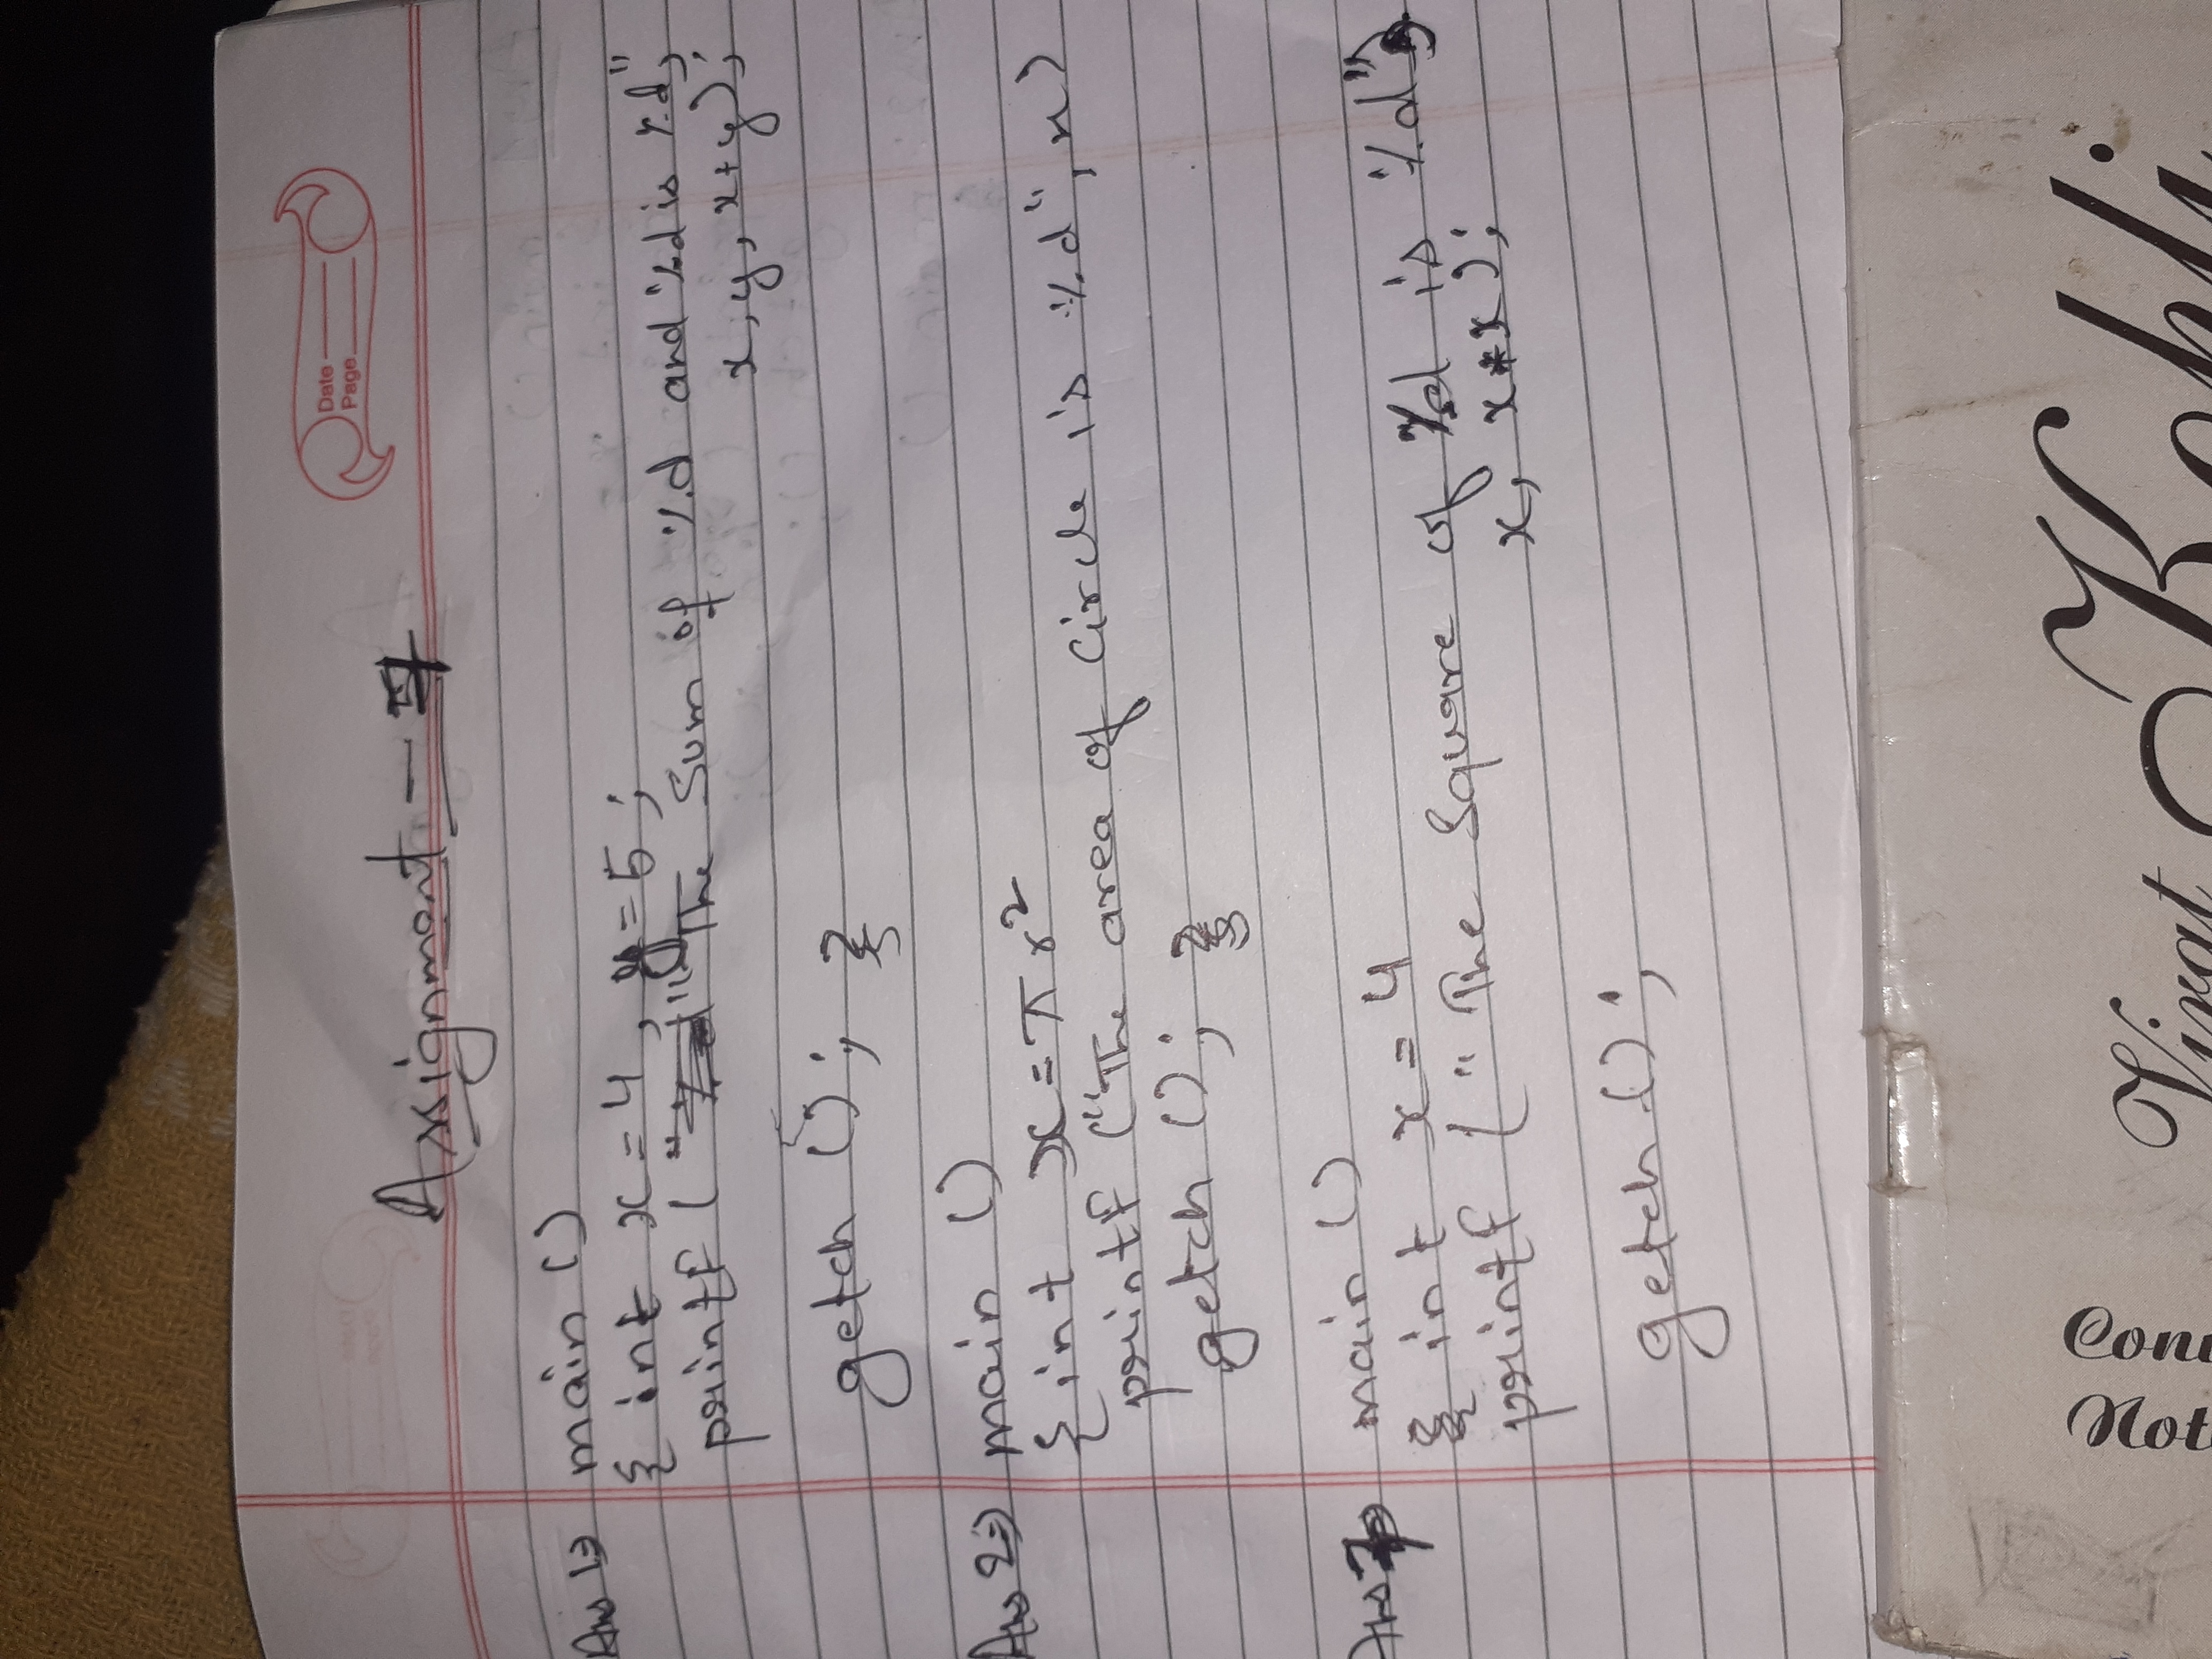 Date
Page
Assignment -
Ans 1⇒ main ()
{ int x = 4, y = 5;
printf ("The Sum of %d and %d is %d",
x, y, x+y);
getch (); }
Ans 2⇒ main ()
{ int x = π r²
printf ("The area of Circle is %d", x)
getch (); }
Ans main ()
{ int x = 4
printf ("The Square of %d is %d",
x, x*x);
getch ();
Virat Kohli